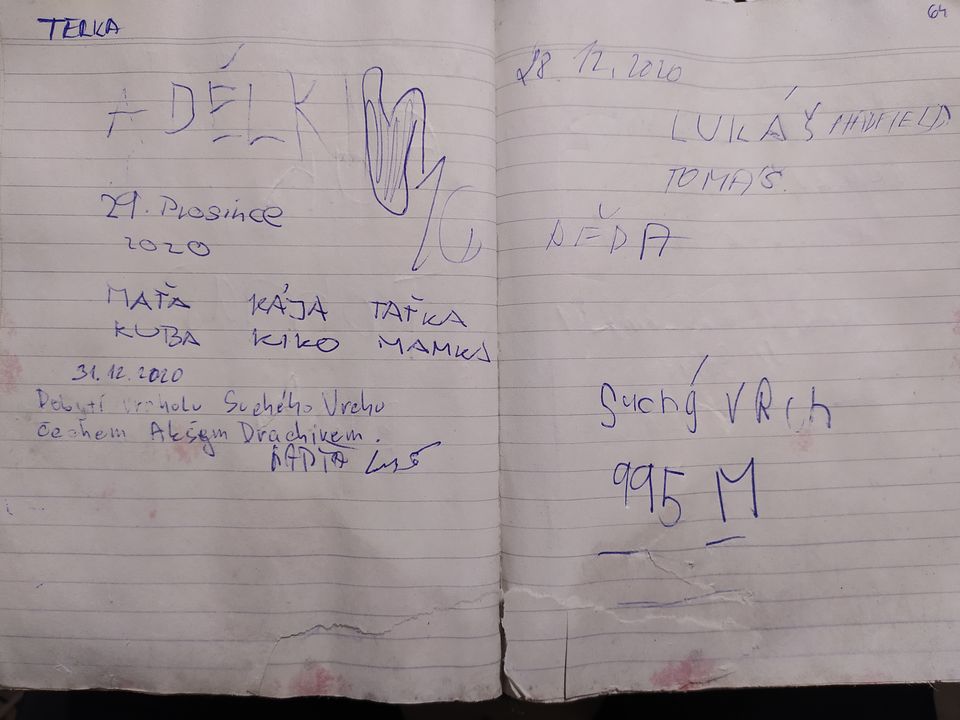 TERKA
ADÉLK
29. Prosince
2020
MAŤA KÁJA TAŤKA
KUBA KIKO MAMKA
31.12.2020
Dobytí vrcholu Suchého Vrchu
Čechem
64
28.12.2020
LUKÁŠ
TOMÁŠ
DĚDA
Suchý VRch
995 M